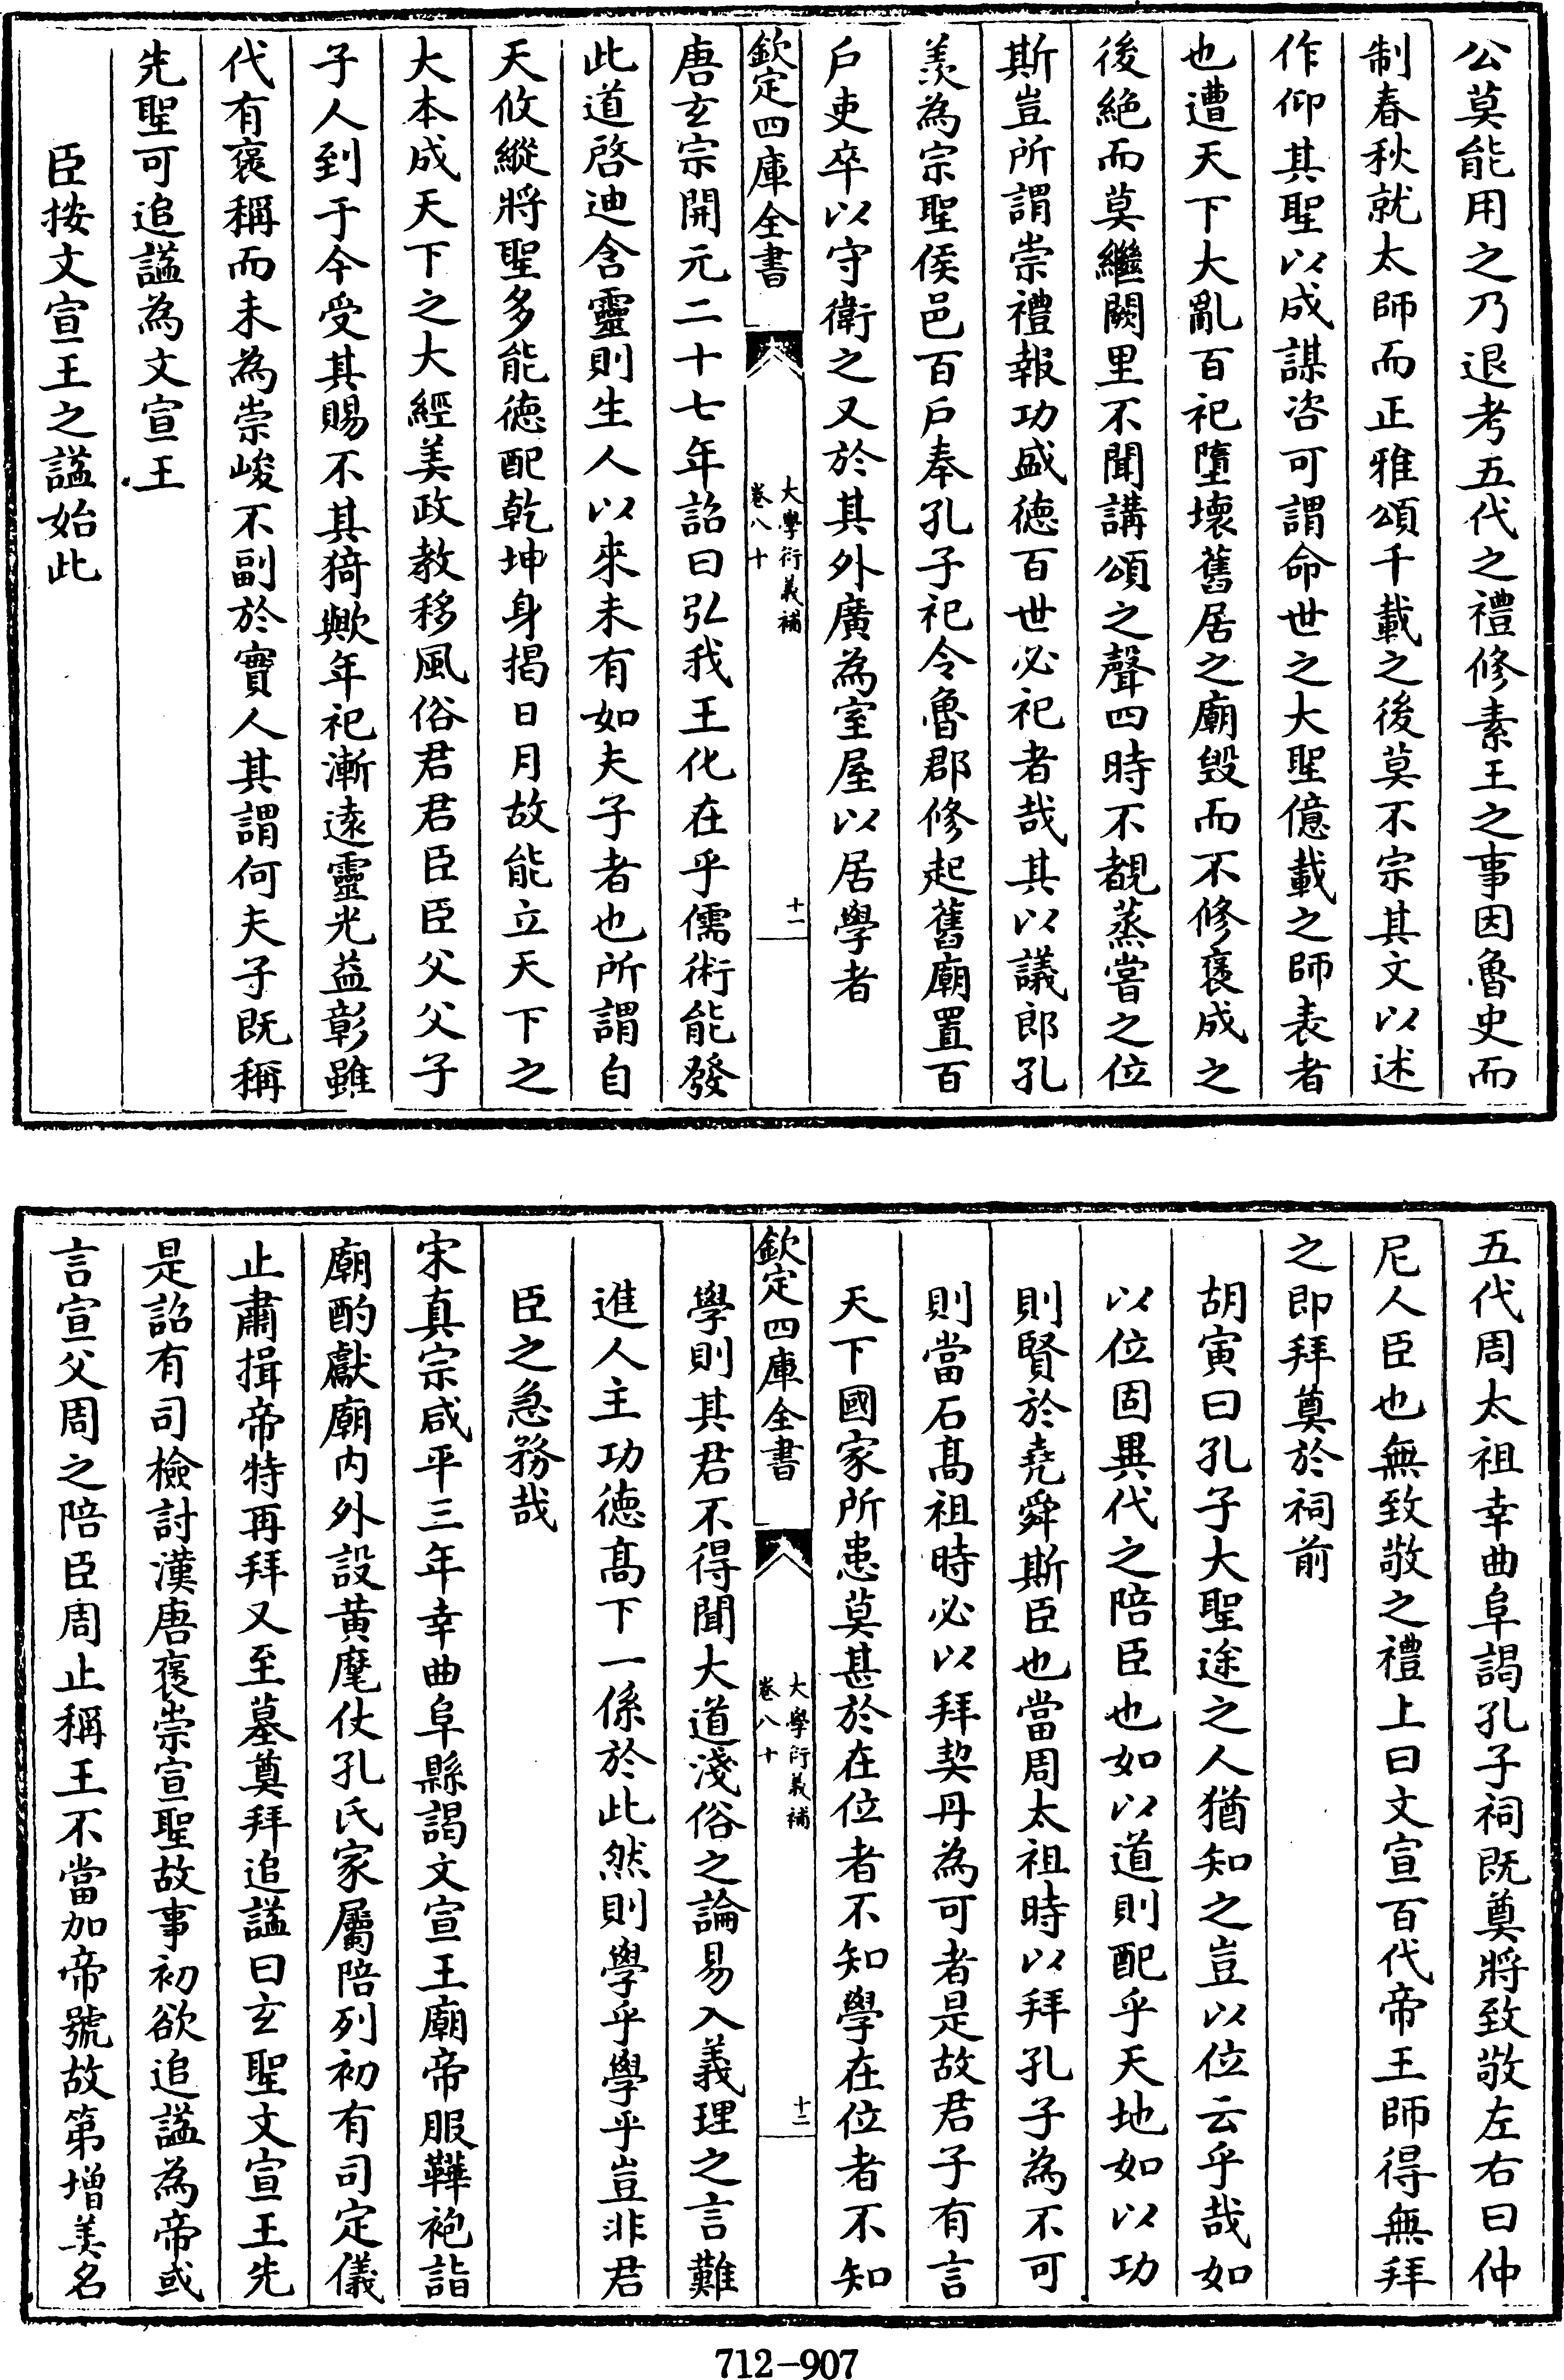 公莫能用之乃退考五代之禮修素王之事因魯史而
制春秋就太師而正雅頌千載之後莫不宗其文以述
作仰其聖以成謀咨可謂命世之大聖億載之師表者
也遭天下大亂百祀墮壞舊居之廟毀而不修褒成之
後絕而莫繼闕里不聞講頌之聲四時不覩蒸嘗之位
斯豈所謂崇禮報功盛德百世必祀者哉其以議郎孔
羨為宗聖侯邑百戶奉孔子祀令魯郡修起舊廟置百
戶吏卒以守衛之又於其外廣為室屋以居學者
欽定四庫全書
大學衍義補
卷八十
十一
唐玄宗開元二十七年詔曰弘我王化在乎儒術能發
此道啓迪含靈則生人以來未有如夫子者也所謂自
天攸縱將聖多能德配乾坤身揭日月故能立天下之
大本成天下之大經美政教移風俗君君臣臣父父子
子人到于今受其賜不其猗歟年祀漸遠靈光益彰雖
代有褒稱而未為崇峻不副於實人其謂何夫子既稱
先聖可追諡為文宣王
臣按文宣王之諡始此
五代周太祖幸曲阜謁孔子祠既奠將致敬左右曰仲
尼人臣也無致敬之禮上曰文宣百代帝王師得無拜
之即拜奠於祠前
胡寅曰孔子大聖途之人猶知之豈以位云乎哉如
以位固異代之陪臣也如以道則配乎天地如以功
則賢於堯舜斯臣也當周太祖時以拜孔子為不可
則當石高祖時必以拜契丹為可者是故君子有言
天下國家所患莫甚於在位者不知學在位者不知
欽定四庫全書
大學衍義補
卷八十
十二
學則其君不得聞大道淺俗之論易入義理之言難
進人主功德高下一係於此然則學乎學乎豈非君
臣之急務哉
宋真宗咸平三年幸曲阜縣謁文宣王廟帝服鞾袍詣
廟酌獻廟內外設黃麾仗孔氏家屬陪列初有司定儀
止肅揖帝特再拜又至墓奠拜追諡曰玄聖文宣王先
是詔有司檢討漢唐褒崇宣聖故事初欲追諡為帝或
言宣父周之陪臣周止稱王不當加帝號故第增美名
712-907